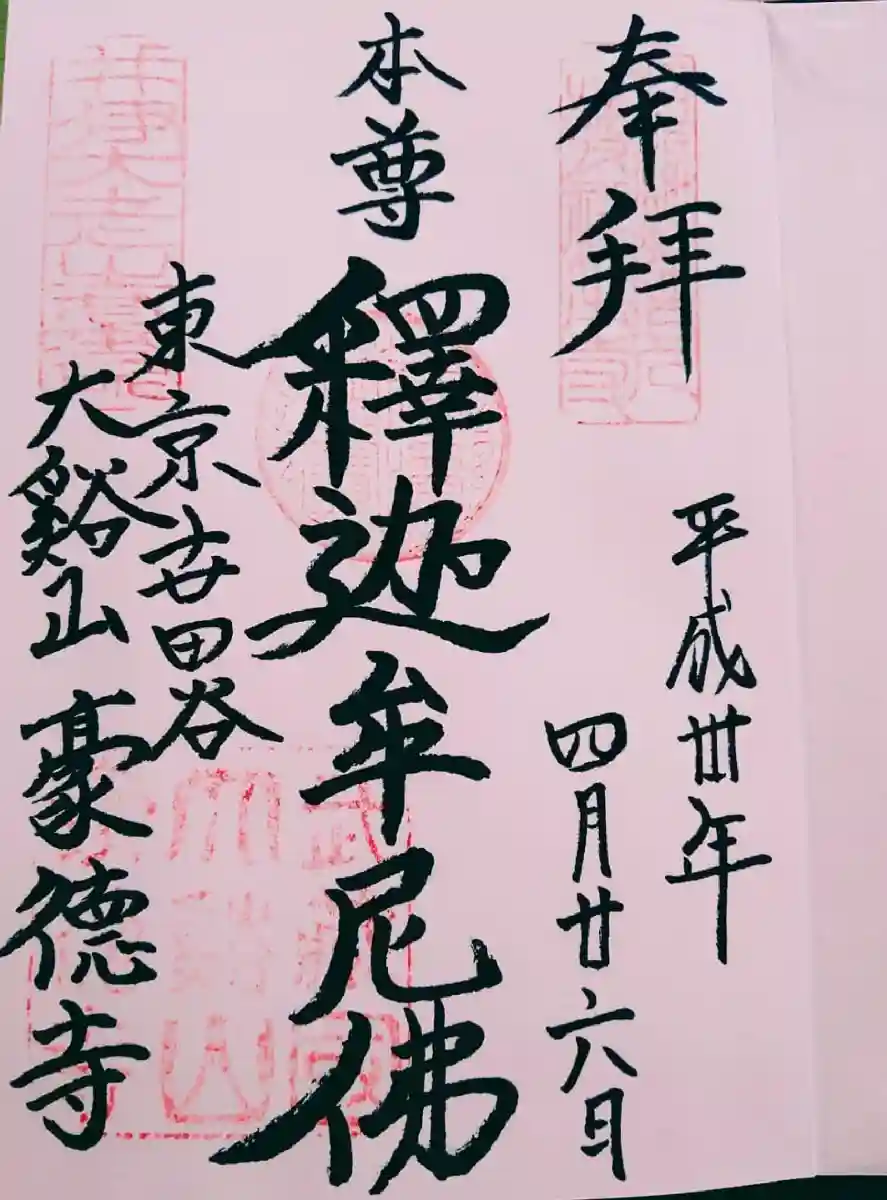 奉拜
平成卅年
四月廿六日
本尊
釋迦牟尼佛
東京世田谷
大谿山 豪德寺